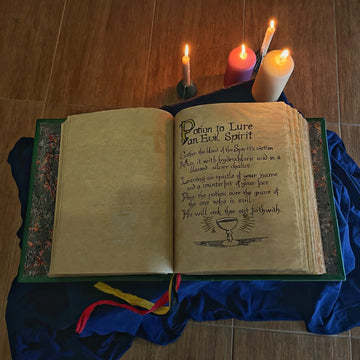 Potion to Lure
an Evil Spirit
the blood of the Spirit's victim
Mix it with hydrochloric acid in a
blessed silver chalice.
Leaving an epistle of your name
and a counterfeit of your face
Pour the potion over the grave of
the one who is evil.
He will seek thee out forthwith.